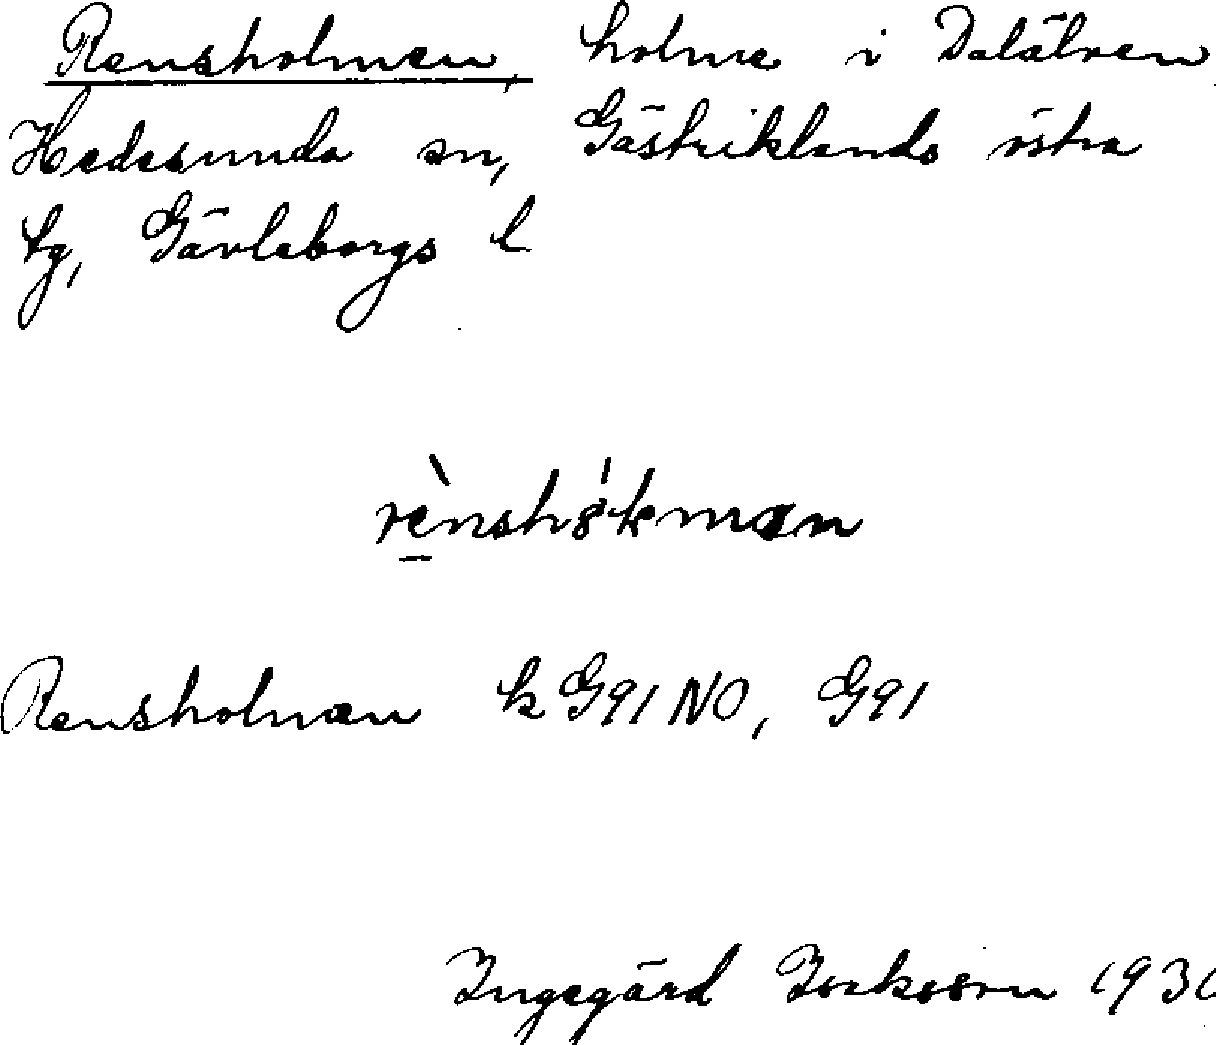 Rensholmen, holme i Dalälven
Hedesunda sn, Gästriklands östra
tg, Gävleborgs l
Rensholmen k G91 NO, G91
Ingegärd Isaksson